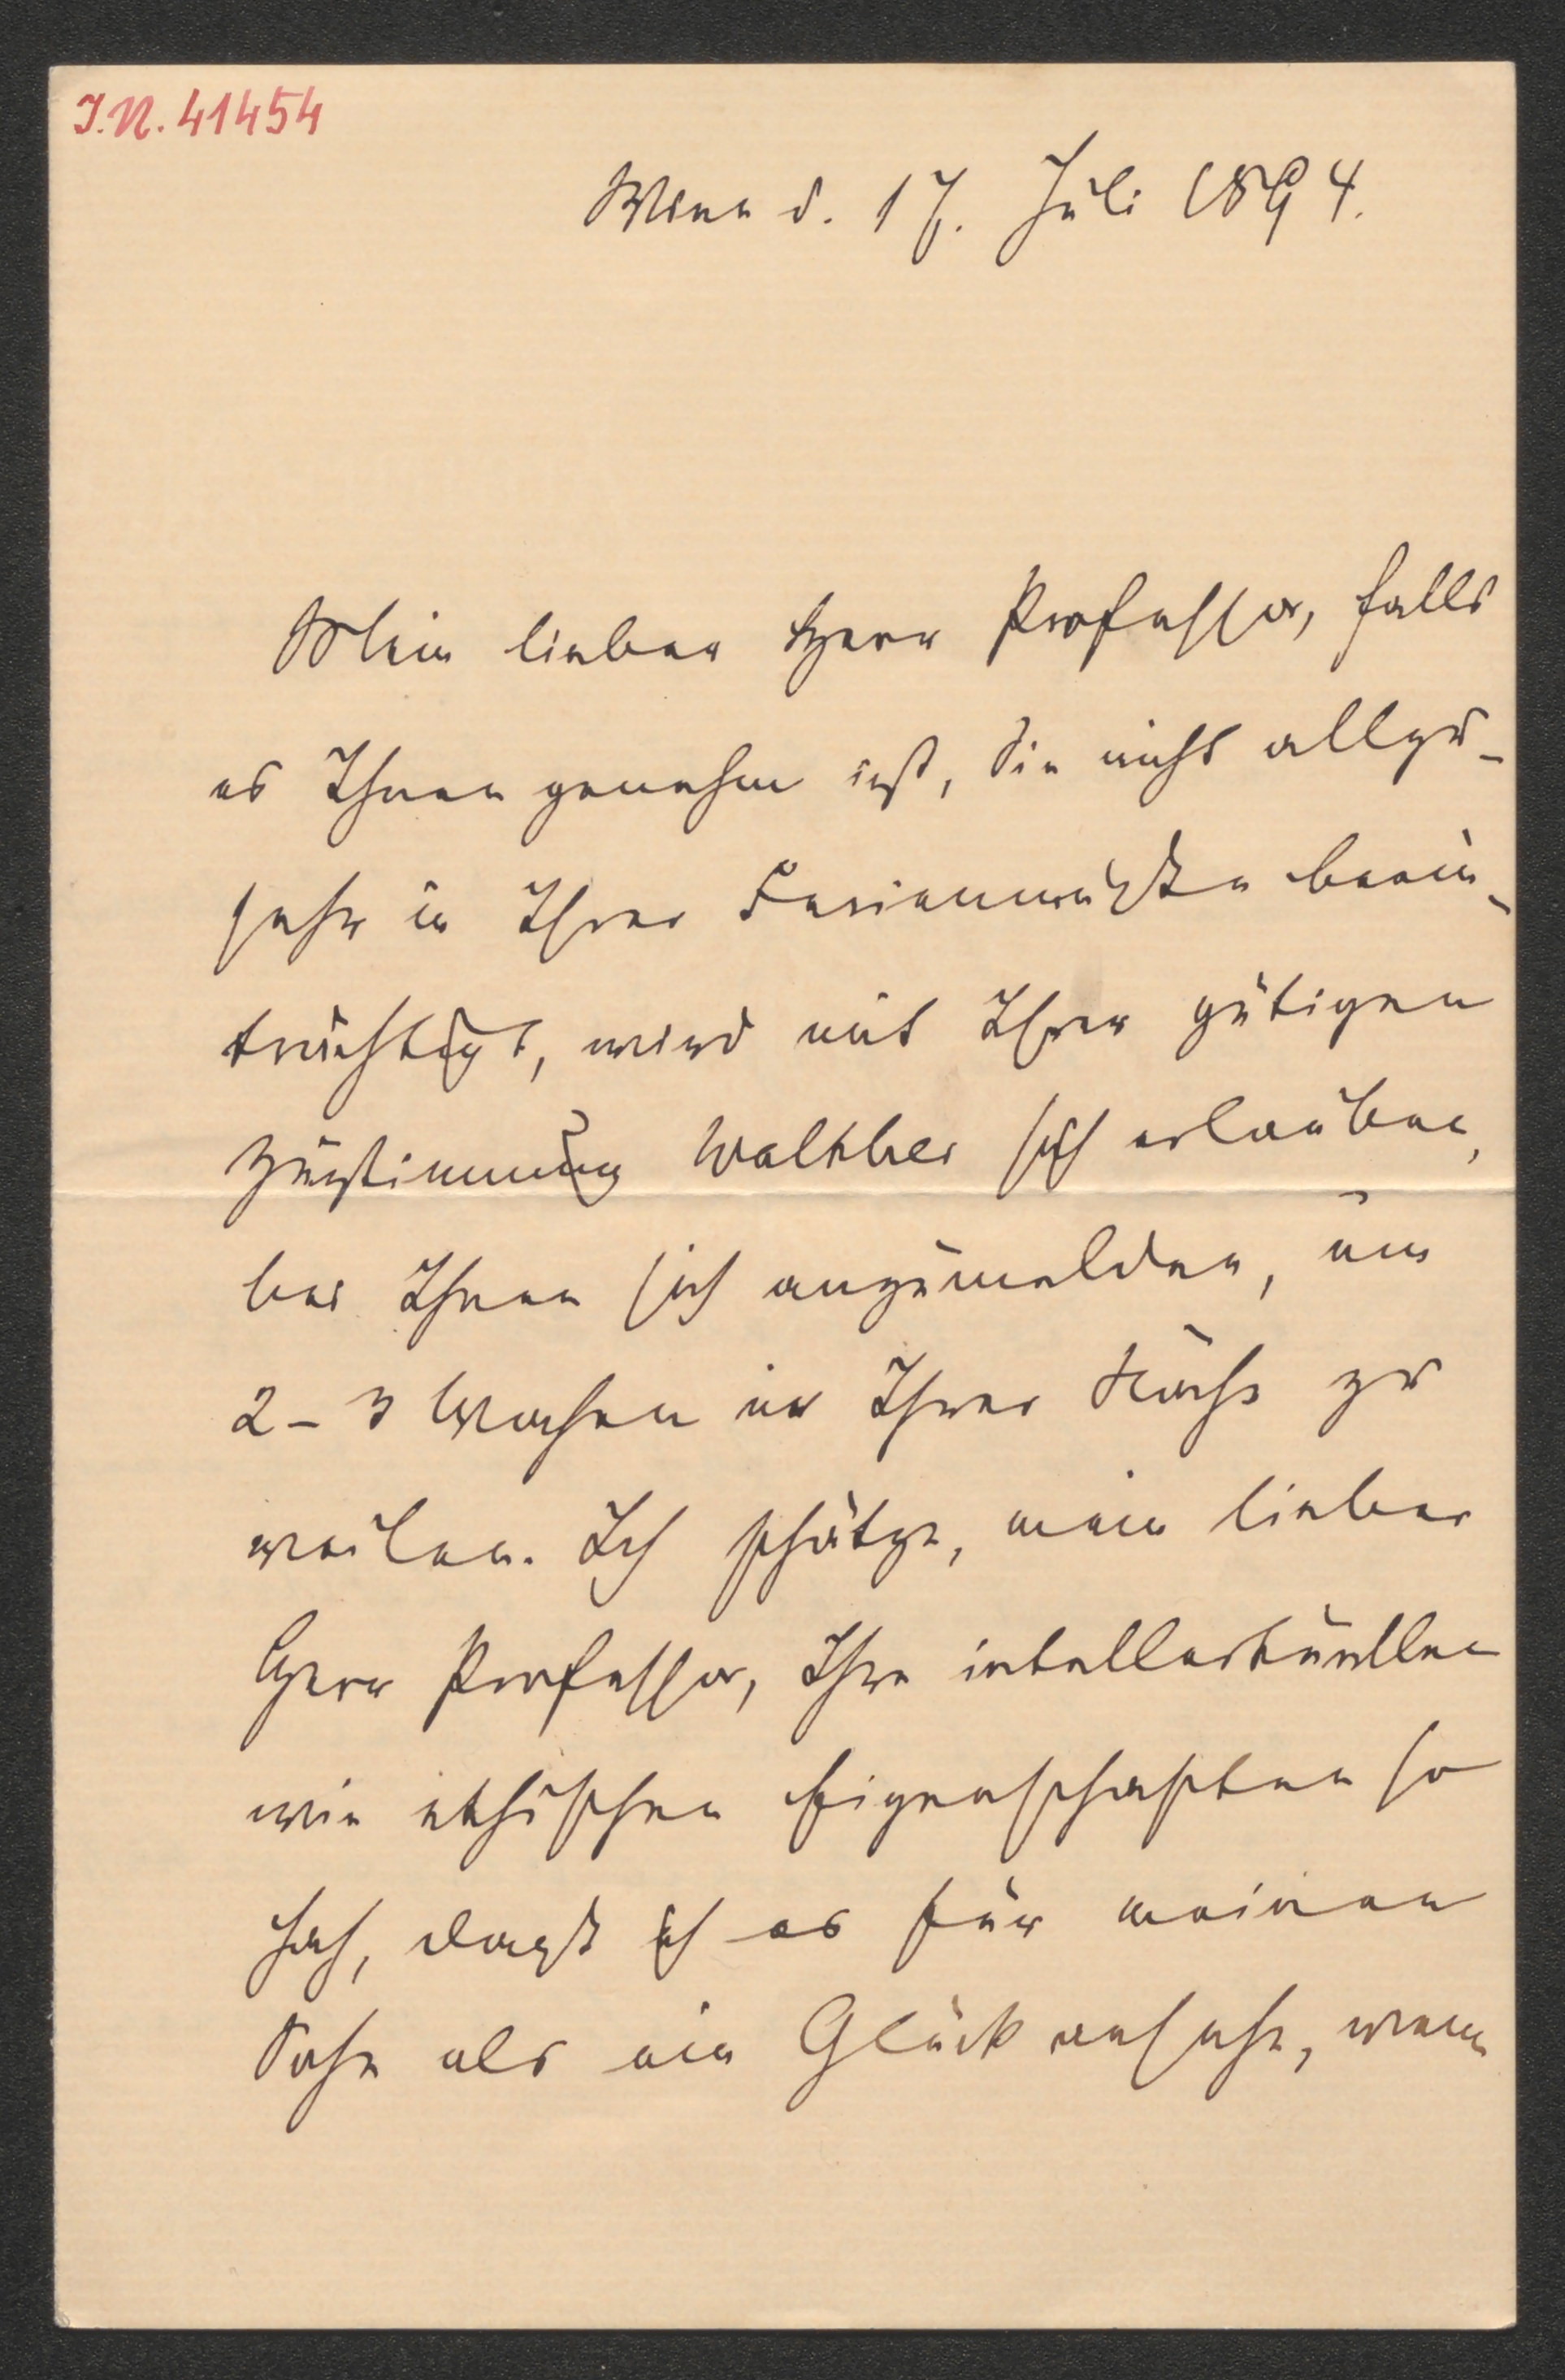 I.N. 41454
Wien d. 17. Juli 1894.
Mein lieber Herr Professor, falls
es Ihnen genehm ist, Sie nicht allzu-
sehr in Ihrer Ferienmuße beein-
trächtigt, wird mit Ihrer gütigen
Zustimmung Walther sich erlauben,
bei Ihnen sich anzumelden, um
2-3 Wochen in Ihrer Nähe zu
weilen. Ich schätze, mein lieber
Herr Professor, Ihre intellectuellen
wie ethischen Eigenschaften so
hoch, daß ich es für meinen
Sohn als ein Glück ansehe, wenn